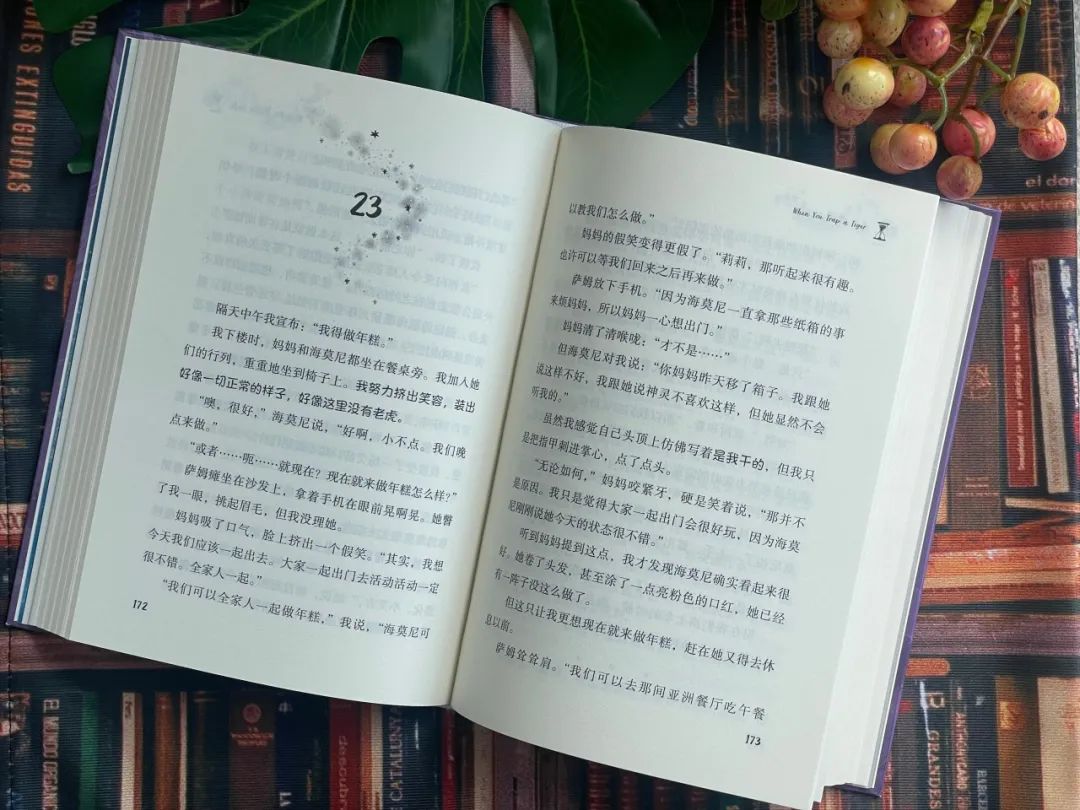 23
隔天中午我宣布：“我得做年糕。”
我下楼时，妈妈和海莫尼都坐在餐桌旁。我加入她
们的行列，重重地坐到椅子上。我努力挤出笑容，装出
好像一切正常的样子，好像这里没有老虎。
“噢，很好，”海莫尼说，“好啊，小不点。我们晚
点来做。”
“或者……呃……就现在？现在就来做年糕怎么样？”
萨姆瘫坐在沙发上，拿着手机在眼前晃啊晃。她瞥
了我一眼，挑起眉毛，但我没理她。
妈妈吸了口气，脸上挤出一个假笑。“其实，我想
今天我们应该一起出去。大家一起出门去活动活动一定
很不错。全家人一起。”
“我们可以全家人一起做年糕，”我说，“海莫尼可
172
When You Trap a Tiger
以教我们怎么做。”
妈妈的假笑变得更假了。“莉莉，那听起来很有趣。
也许可以等我们回来之后再来做。”
萨姆放下手机。“因为海莫尼一直拿那些纸箱的事
来烦妈妈，所以妈妈一心想出门。”
妈妈清了清喉咙：“才不是……”
但海莫尼对我说：“你妈妈昨天移了箱子。我跟她
说这样不好，我跟她说神灵不喜欢这样，但她显然不会
听我的。”
虽然我感觉自己头顶上仿佛写着是我干的，但我只
是把指甲刺进掌心，点了点头。
“无论如何，”妈妈咬紧牙，硬是笑着说，“那并不
是原因。我只是觉得大家一起出门会很好玩，因为海莫
尼刚刚说她今天的状态很不错。”
听到妈妈提到这点，我才发现海莫尼确实看起来很
好。她卷了头发，甚至涂了一点亮粉色的口红，她已经
有一阵子没这么做了。
但这只让我更想现在就来做年糕，赶在她又得去休
息以前。
萨姆耸耸肩。“我们可以去那间亚洲餐厅吃午餐
173
EXTINGUIDAS
el dar
EL MUNDO
CATALUNYA
descubr
GRANDES